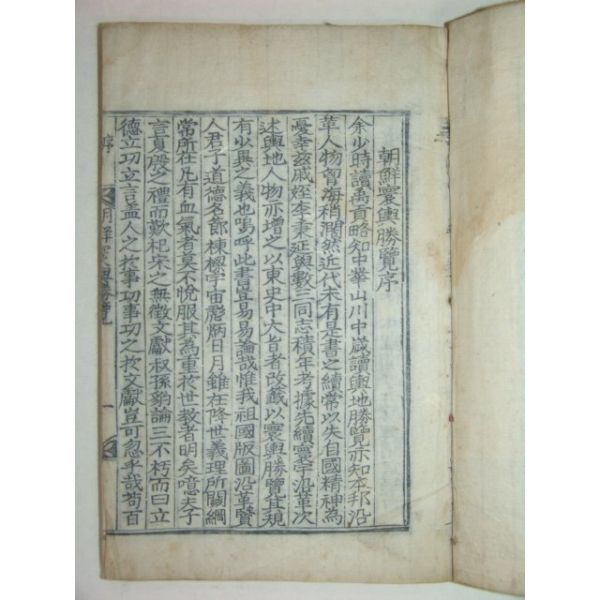 朝鮮寰輿勝覽序
余少時讀禹貢略知中華山川中歲讀輿地勝覽亦知本邦沿
革人物曾海稍濶然近代未有是書之續常以失自國精神爲
憂幸玆戚姪李秉延與數三同志積年考據先續寰宇沿革次
述輿地人物亦增之以東史中大旨者改籤以寰輿勝覽佳規
有少異之義也嗚呼此書豈易易論哉惟我祖國版圖沿革賢
人君子道德名節棟樑宇宙磨炳日月雖在降世義理所關綱
常所在凡有血氣者莫不悅服其爲重於世敎者明矣噫夫子
言夏殷之禮而歎杞宋之無徵文獻叔孫豹論三不朽而曰立
德立功立言盖人之於事功事功之於文獻豈可忽乎哉苟百
序
朝鮮寰輿勝覽
一